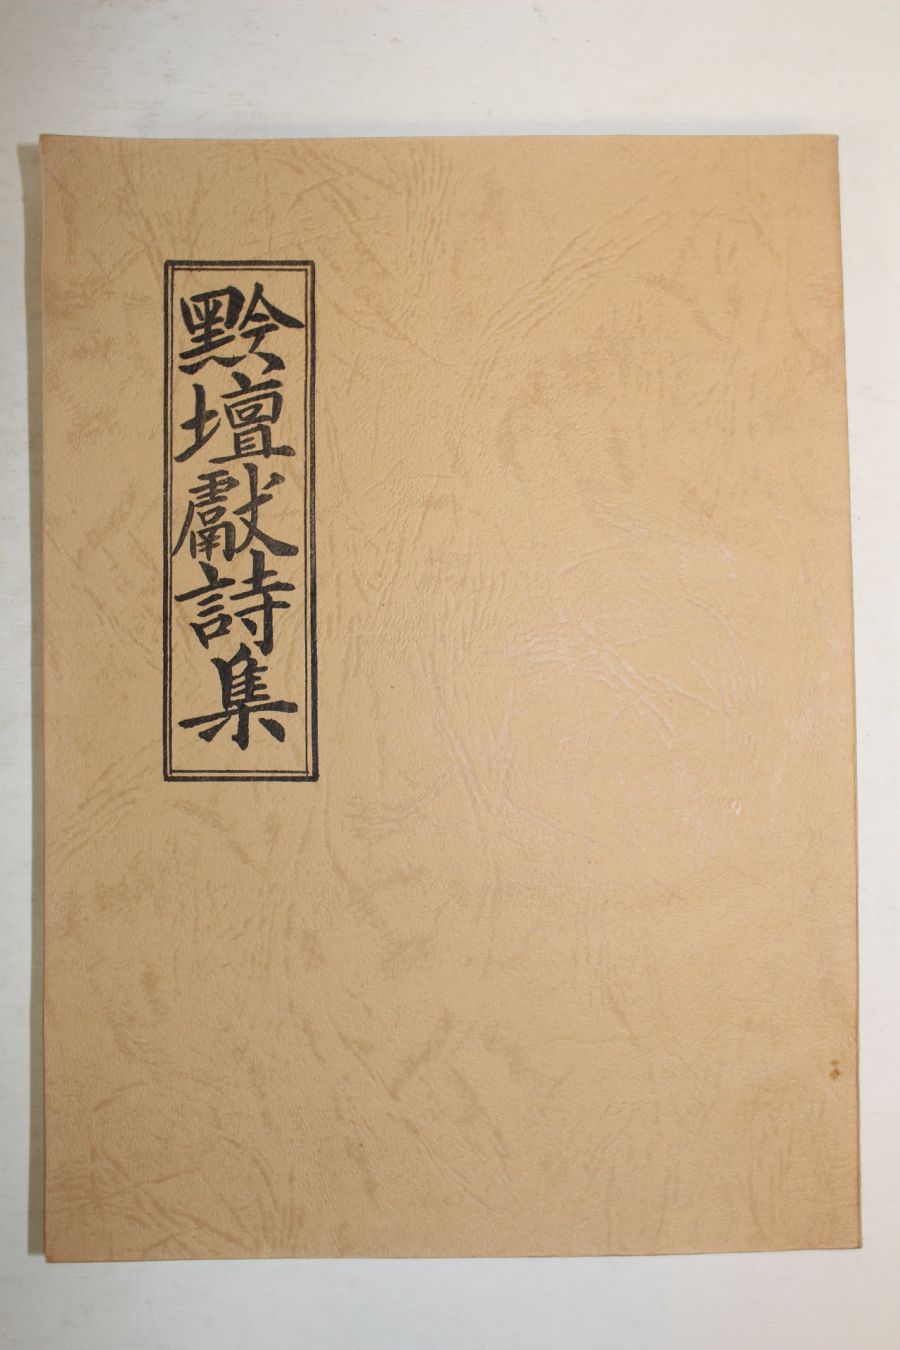 黔壇獻詩集